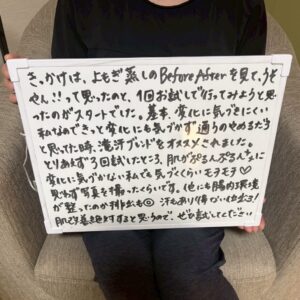 きっかけは、よもぎ蒸しのBefore Afterを見て、うそ
やん!!って思ったのと、1回お試しで行ってみようと思
ったのがスタートでした。基本、変化に気づきにくい
私なのできっと変化にも気づかず通うのやめるだろう
と思ってた時、滝汗ブレンドをオススメされました。
とりあえず3回試したところ、肌がぷるんぷるん
変化に気づかない私でも気づくくらいモチモチ♡
思わず写真を撮ったくらいです。他にも腸内環境
が整ったのか排出も◎ 汗もあり得ないくらい
肌で差絶対すると思うので、ぜひ試してください